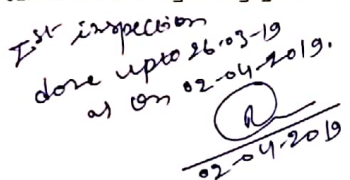 Ist inspection
done upto 26-03-19
as on 02-04-2019.
02-04-2019